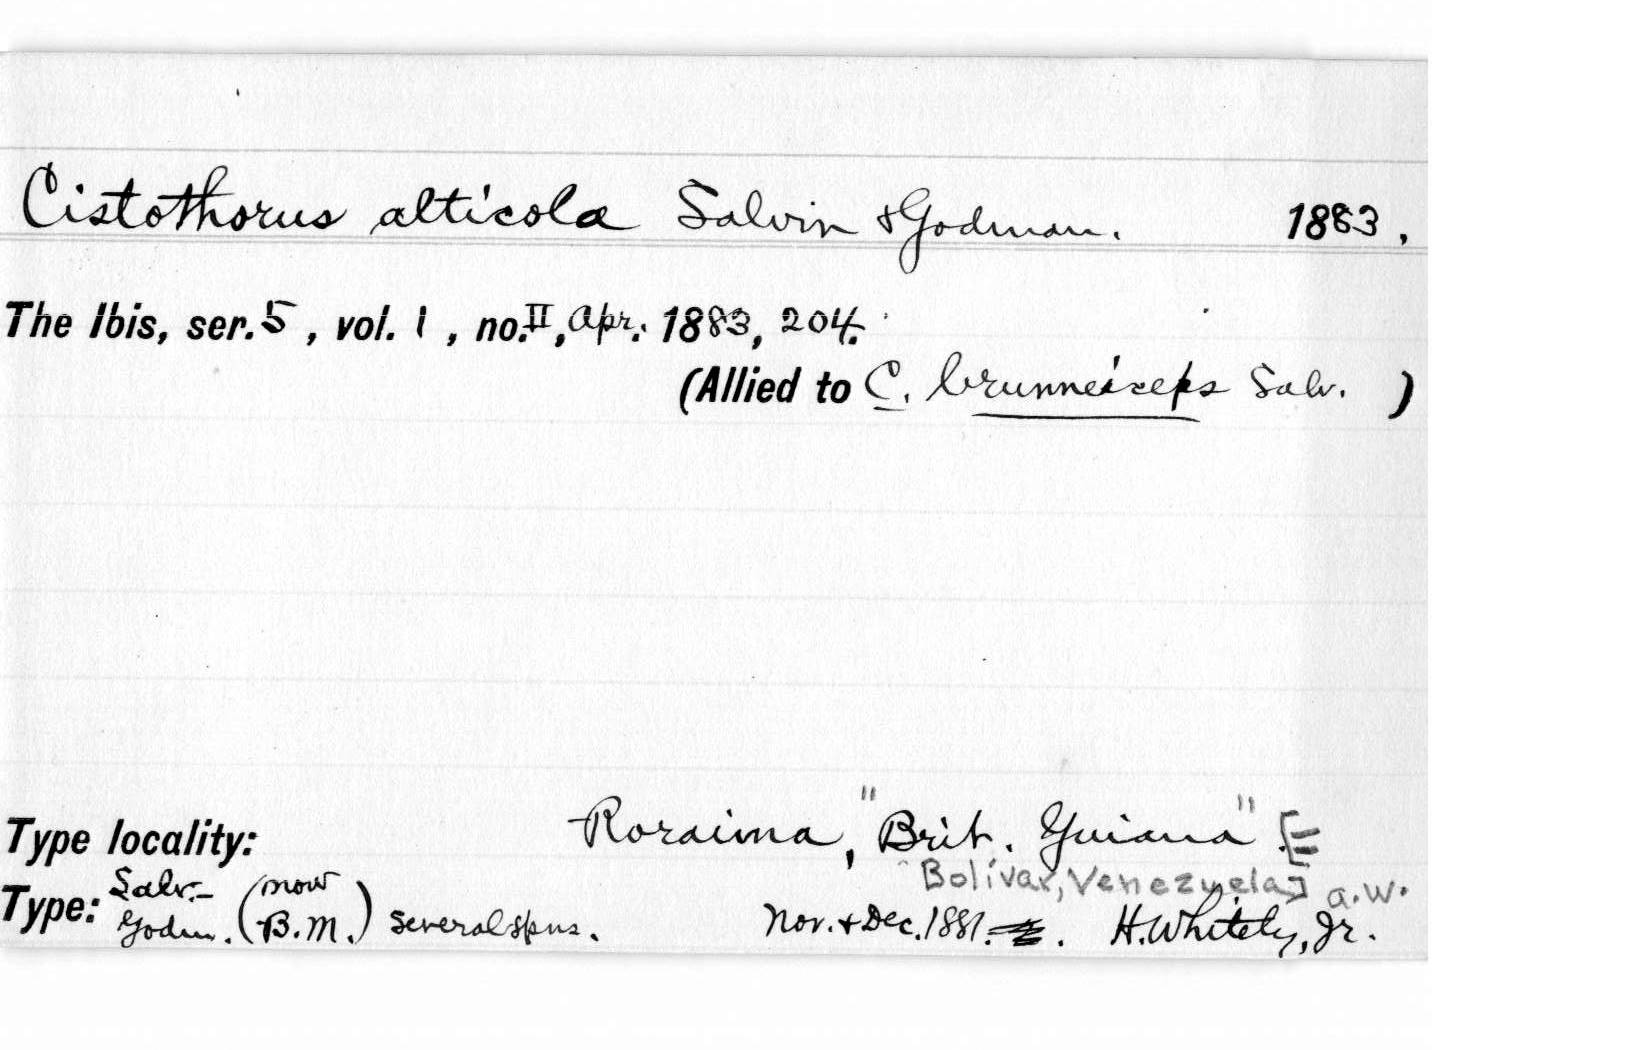 Cistothorus alticola Salvin & Godman. 1883.
The Ibis, ser. 5, vol. 1, no. II, Apr. 1883, 204.
(Allied to C. brunneiceps Salv. )
Type locality: Roraima, "Brit. Guiana" [=
Bolívar, Venezuela] A.W.
Type: Salv.-Godm. (now B.M.) several spms. Nov. & Dec. 1881. H. Whitely, Jr.